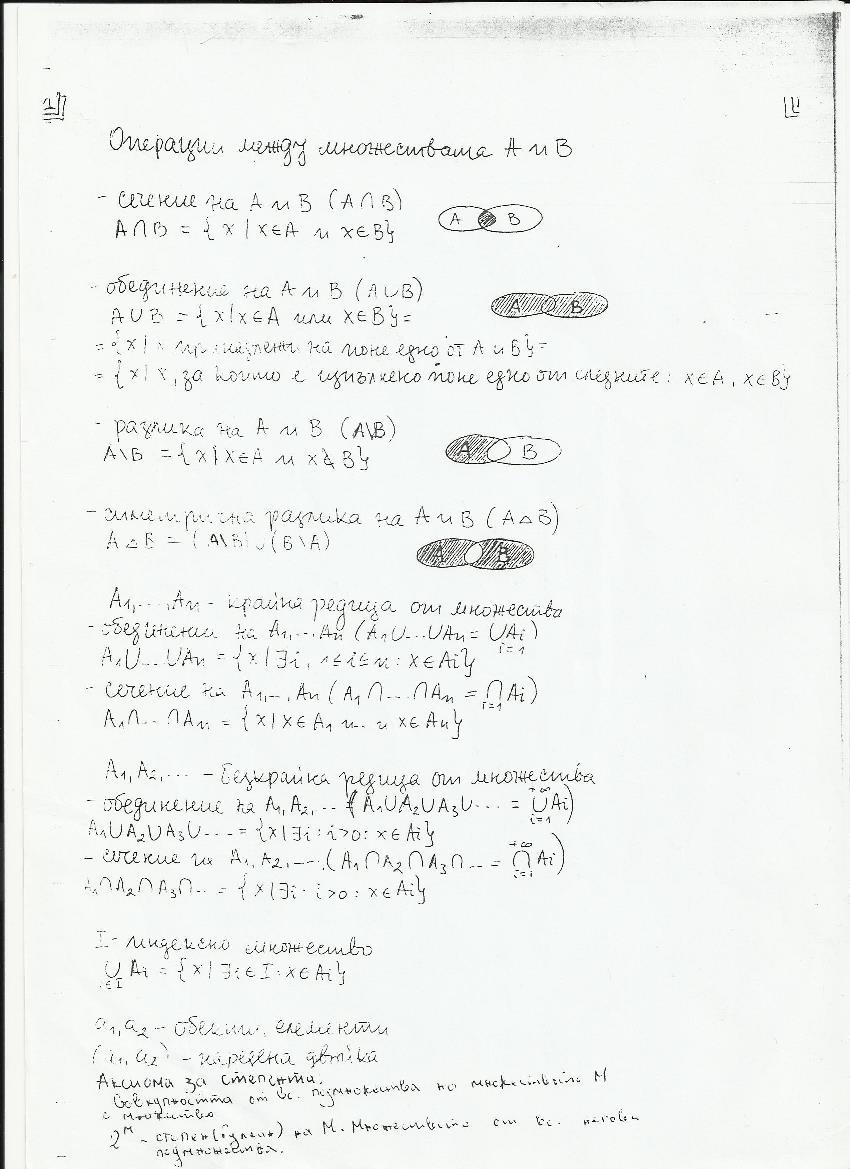 Операции между множествата А и В
- сечение на А и В (A∩B)
A∩B = {x | x∈A и x∈B}
A B
- обединение на А и В (A∪B)
A∪B = {x | x∈A или x∈B} =
A B
= {x | x принадлежи на поне едно от А и В} =
= {x | x, за който е изпълнено поне едно от следните: x∈A, x∈B}
- разлика на А и В (A\B)
A\B = {x | x∈A и x∉B}
A B
- симетрична разлика на А и В (A△B)
A△B = (A\B)∪(B\A)
A B
A1,...,An - крайна редица от множества
- обединение на A1,...An (A1∪...∪An = ∪Ai)
i=1
A1∪...∪An = {x | ∃i, 1≤i≤n : x∈Ai}
- сечение на A1,..,An (A1∩...∩An = ∩Ai)
i=1
A1∩...∩An = {x | x∈A1 и... и x∈An}
A1, A2,... - безкрайна редица от множества
+∞
- обединение на A1, A2,... (A1∪A2∪A3∪... = ∪Ai)
i=1
A1∪A2∪A3∪... = {x | ∃i : i>0 : x∈Ai}
+∞
- сечение на A1, A2,... (A1∩A2∩A3∩... = ∩Ai)
i=1
A1∩A2∩A3∩... = {x | ∃i : i>0 : x∈Ai}
I - индексно множество
∪Ai = {x | ∃i∈I : x∈Ai}
i∈I
a1, a2 - обекти, елементи
(a1, a2) - наредена двойка
Аксиома за степента.
Съвкупността от вс. подмножества на множеството М
е множество
2^M - степен(булеан) на М. Множеството от вс. негови
подмножества.